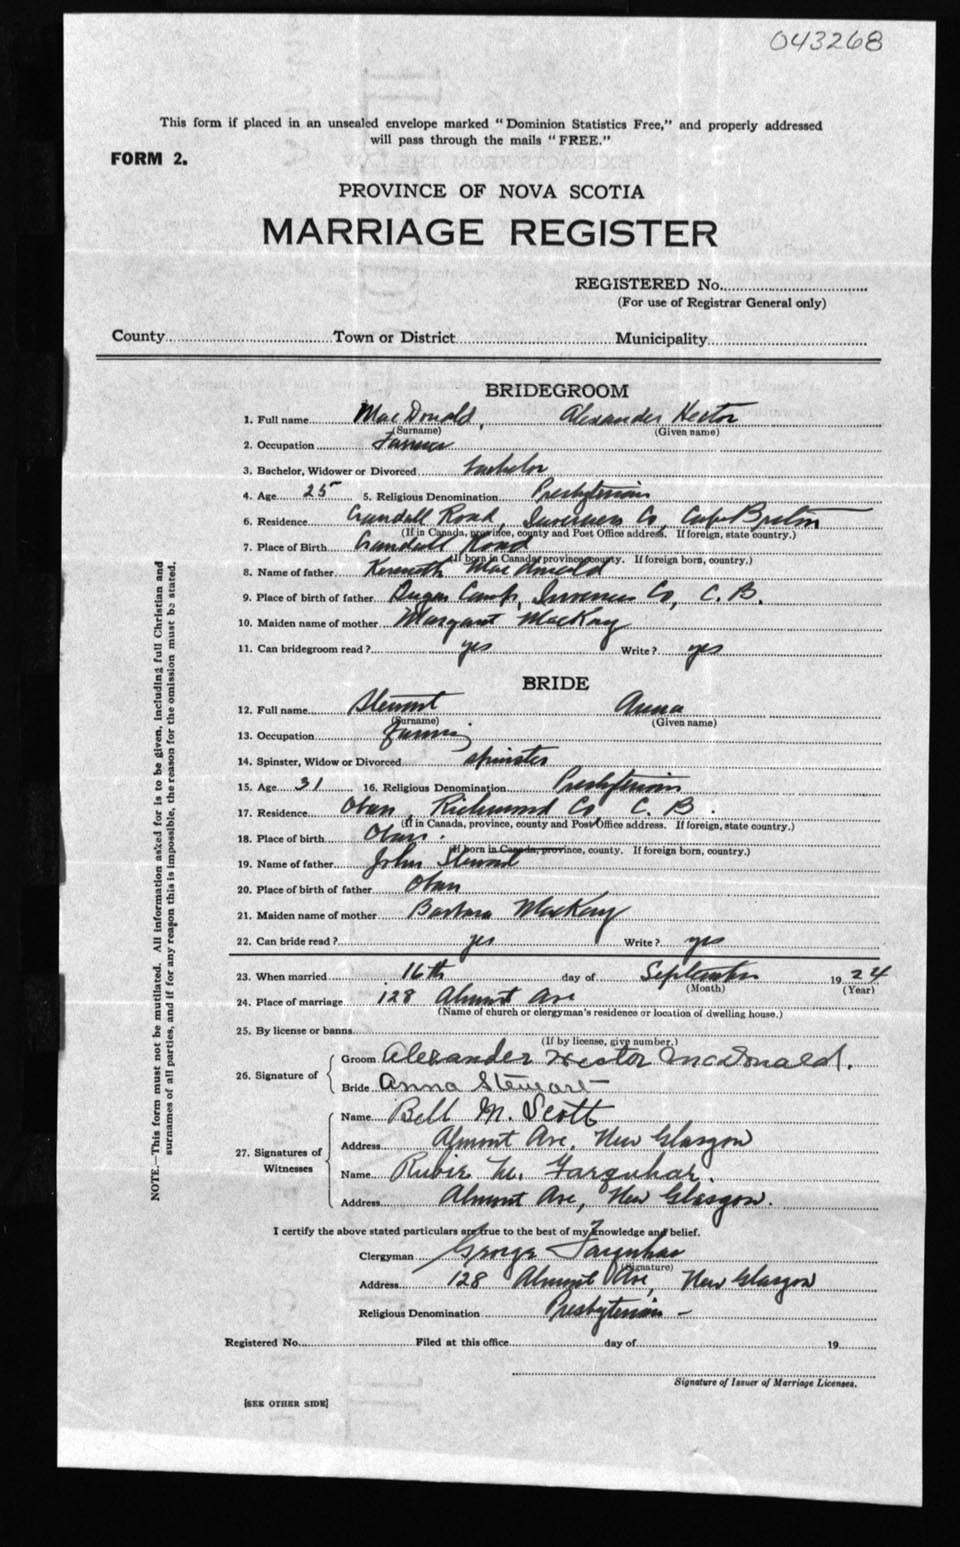 043268
This form if placed in an unsealed envelope marked "Dominion Statistics Free," and properly addressed
will pass through the mails "FREE."
FORM 2.
PROVINCE OF NOVA SCOTIA
MARRIAGE REGISTER
REGISTERED No.
(For use of Registrar General only)
County Town or District Municipality
BRIDEGROOM
1. Full name MacDonald, Alexander Hector
(Surname) (Given name)
2. Occupation Farmer
3. Bachelor, Widower or Divorced bachelor
4. Age 25 5. Religious Denomination Presbyterian
6. Residence Crandall Road, Inverness Co, Cape Breton
(If in Canada, province, county and Post Office address. If foreign, state country.)
7. Place of Birth Crandall Road
(If born in Canada, province, county. If foreign born, country.)
8. Name of father Kenneth MacDonald
9. Place of birth of father Camp, Inverness Co, C. B.
10. Maiden name of mother Margaret MacKay
11. Can bridegroom read? yes Write? yes
BRIDE
12. Full name Stewart Anna
(Surname) (Given name)
13. Occupation
14. Spinster, Widow or Divorced spinster
15. Age 31 16. Religious Denomination Presbyterian
17. Residence Oban, Richmond Co, C. B.
(If in Canada, province, county and Post Office address. If foreign, state country.)
18. Place of birth Oban.
(If born in Canada, province, county. If foreign born, country.)
19. Name of father John Stewart
20. Place of birth of father Oban
21. Maiden name of mother Barbara MacKay
22. Can bride read? yes Write? yes
23. When married 16th day of September 1924
(Month) (Year)
24. Place of marriage 128 Almont Ave
(Name of church or clergyman's residence or location of dwelling house.)
25. By license or banns
(If by license, give number.)
26. Signature of Groom Alexander Hector McDonald.
Bride Anna Stewart
27. Signatures of Witnesses Name Bell M. Scott
Address Almont Ave, New Glasgow
Name Rubie M. Farquhar.
Address Almont Ave, New Glasgow.
I certify the above stated particulars are true to the best of my knowledge and belief.
Clergyman George Farquhar
(Signature)
Address 128 Almont Ave, New Glasgow
Religious Denomination Presbyterian -
Registered No. Filed at this office day of 19
Signature of Issuer of Marriage Licenses.
[SEE OTHER SIDE]
NOTE.—This form must not be mutilated. All information asked for is to be given, including full Christian and
surnames of all parties, and if for any reason this is impossible, the reason for the omission must be stated.